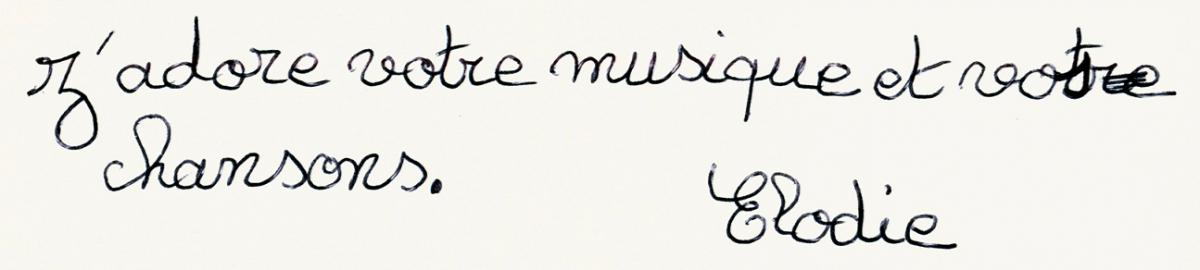 J'adore votre musique et votre
chansons.
Elodie